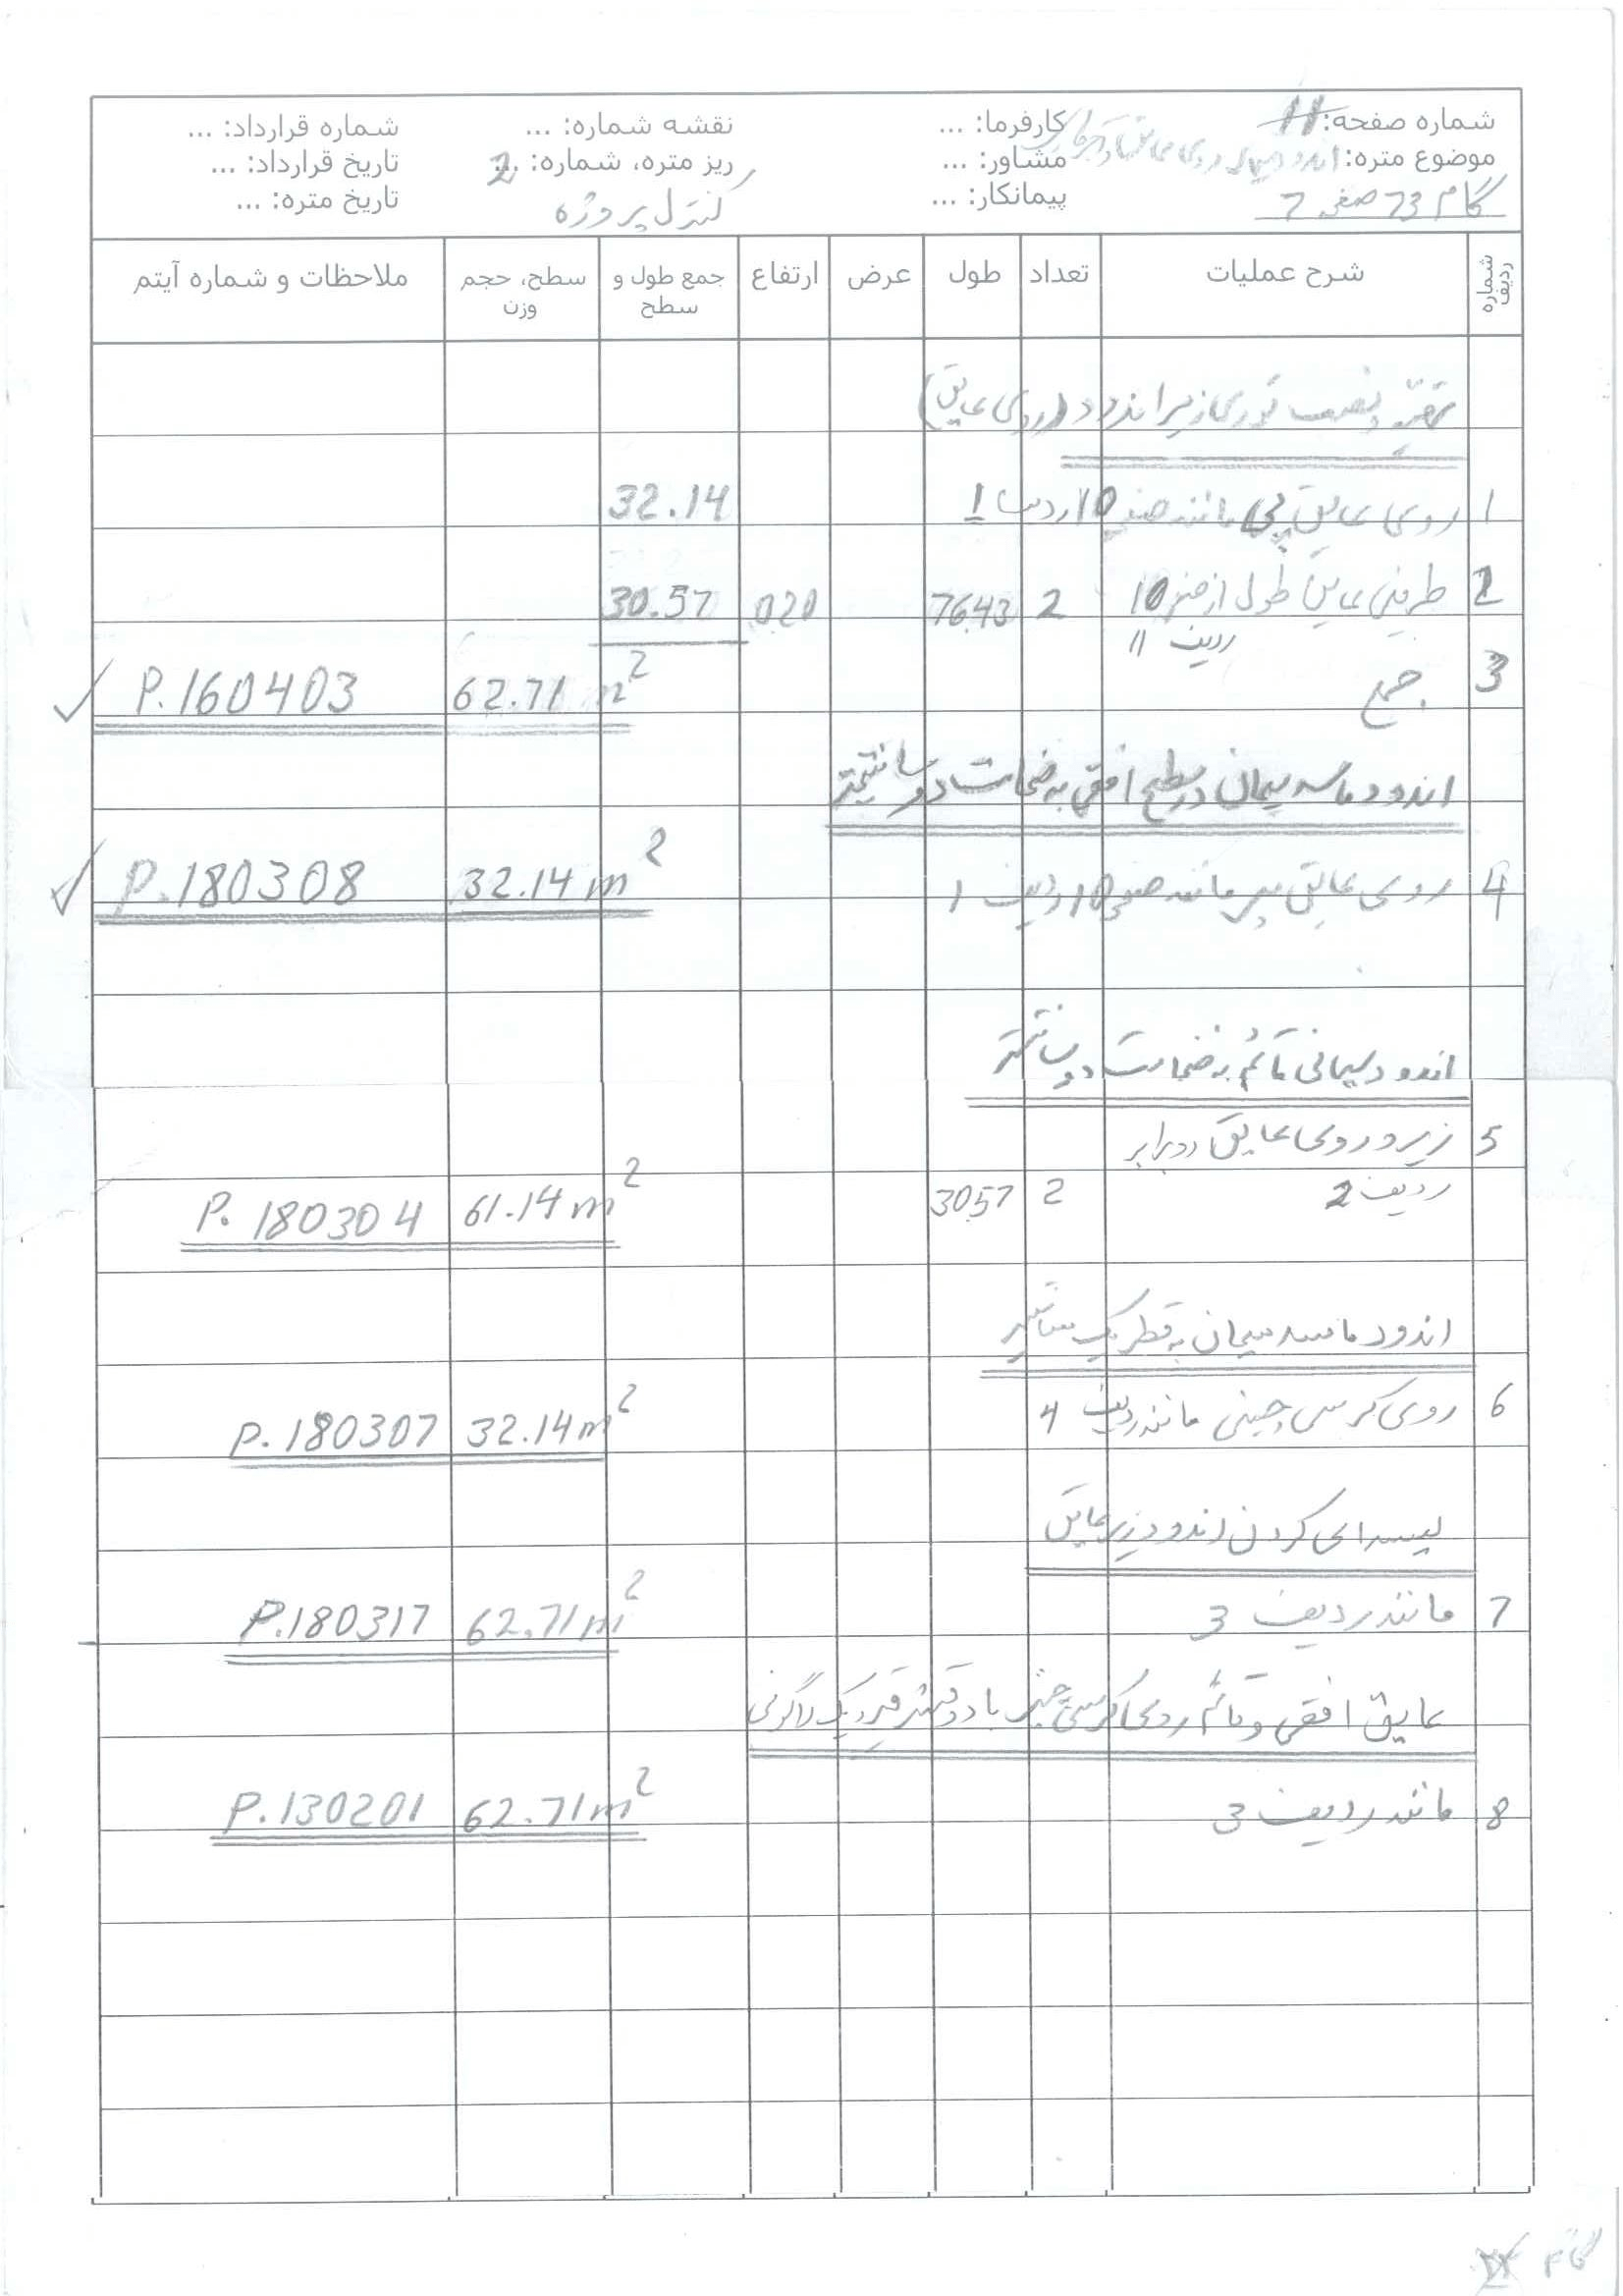 شماره صفحه: 11
موضوع متره: اندود سیمانی روی عایق
گام 73 صفحه 7
کارفرما: ...
مشاور: ...
پیمانکار: ...
نقشه شماره: ...
ریز متره، شماره: ... 2
کنترل پروژه
شماره قرارداد: ...
تاریخ قرارداد: ...
تاریخ متره: ...
شماره ردیف | شرح عملیات | تعداد | طول | عرض | ارتفاع | جمع طول و سطح | سطح، حجم وزن | ملاحظات و شماره آیتم
تهیه و نصب توری زیر اندود (روی عایق)
1 روی عایق پی مانند صفحه 10 ردیف 1 32.14
2 طرفین عایق طول از صفحه 10 2 76.43 0.20 30.57
ردیف 11
3 جمع 62.71 m² P.160403
اندود ماسه سیمان در سطح افقی به ضخامت دو سانتیمتر
4 روی عایق پی مانند صفحه 10 ردیف 1 32.14 m² P.180308
اندود سیمانی قائم به ضخامت دو سانتیمتر
5 زیر و روی عایق دو برابر
ردیف 2 2 30.57 61.14 m² P.180304
اندود ماسه سیمان به قطر یک سانتیمتر
6 روی کرسی چینی مانند ردیف 4 32.14 m² P.180307
لیسه ای کردن اندود زیر عایق
7 مانند ردیف 3 62.71 m² P.180317
عایق افقی و قائم روی کرسی چینی با دو قشر قیر و یک لا گونی
8 مانند ردیف 3 62.71 m² P.130201
گام